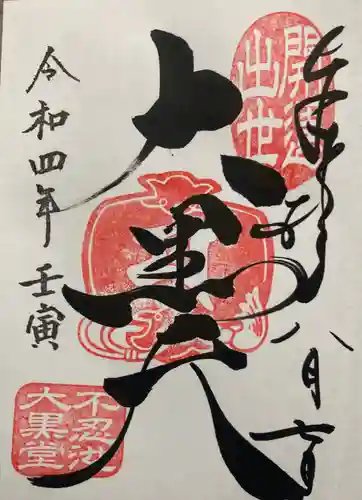 奉拝
八月
開運
出世
大黒天
令和四年 壬寅
不忍池
大黒堂